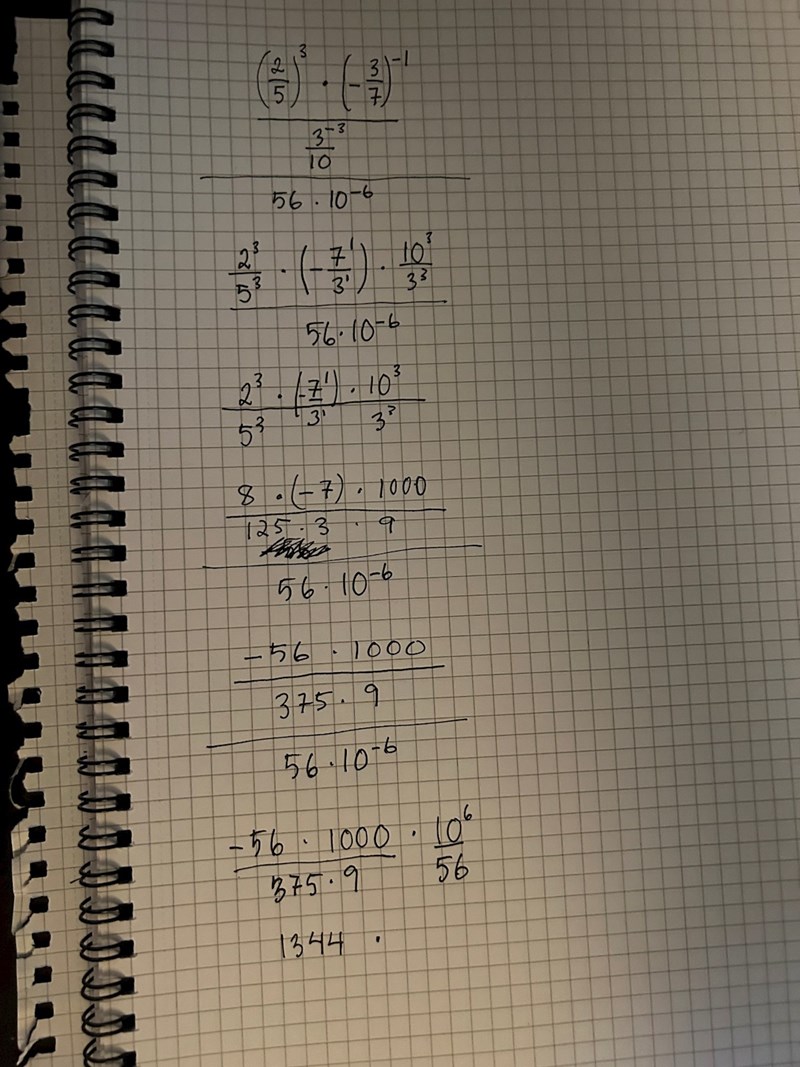 (2/5)³ · (-3/7)⁻¹
3⁻³/10
56 · 10⁻⁶
2³/5³ · (-7¹/3¹) · 10³/3³
56 · 10⁻⁶
2³ · (-7¹) · 10³
5³ 3¹ 3³
8 · (-7) · 1000
125 · 3 · 9
56 · 10⁻⁶
-56 · 1000
375 · 9
56 · 10⁻⁶
-56 · 1000 · 10⁶
375 · 9 56
1344 ·